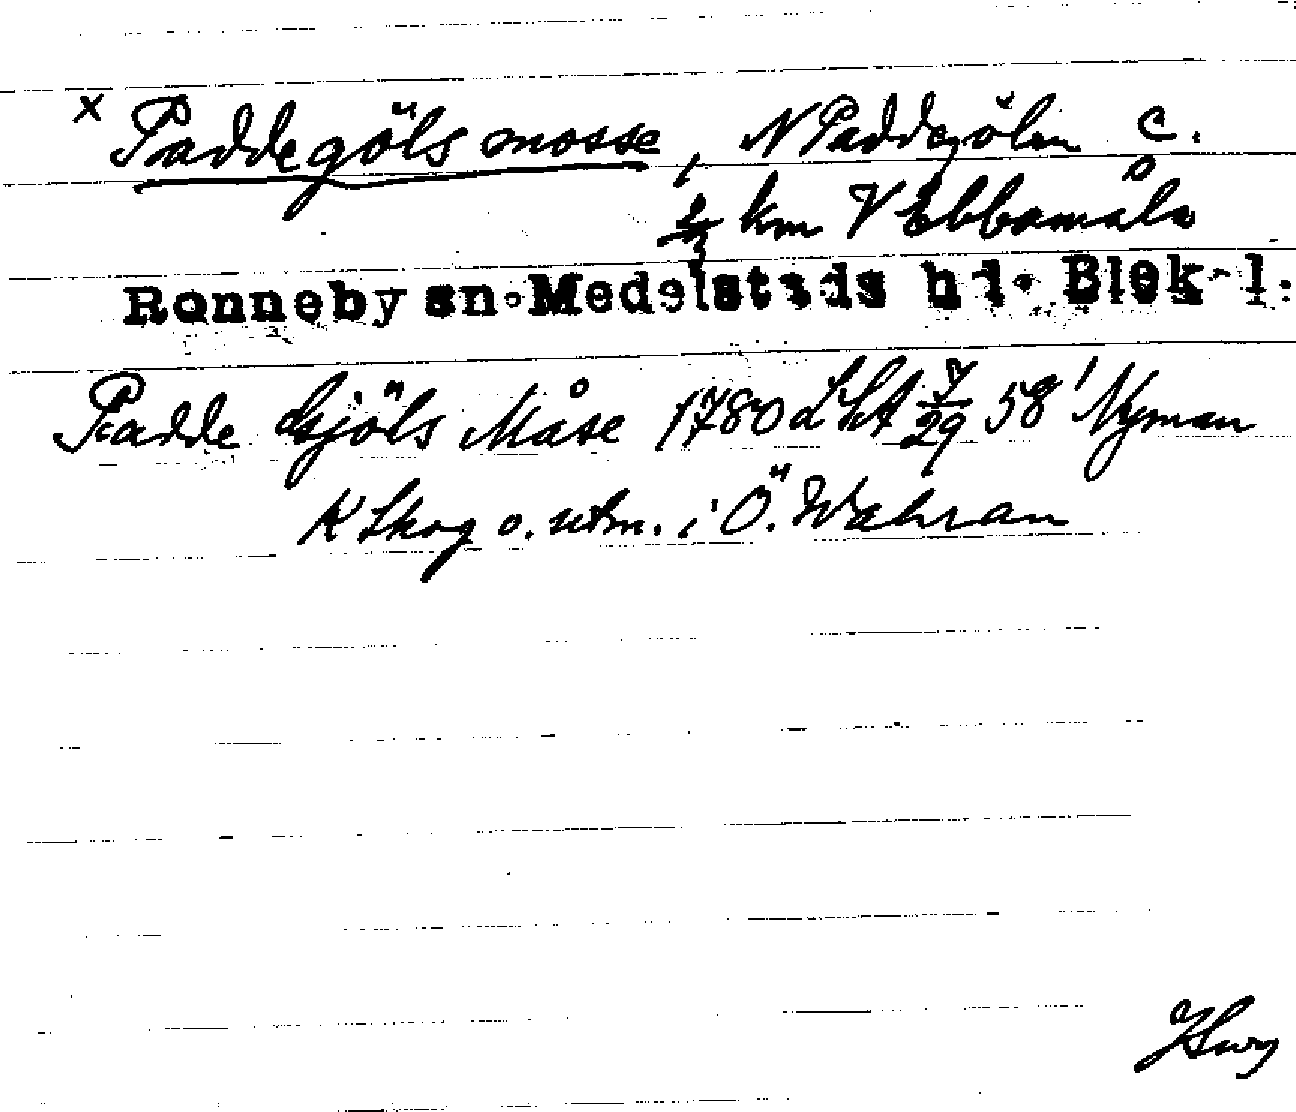 x Paddegöls mosse, N Paddegölen c.
½ km V Ebbamåla
Ronneby sn. Medelstads hd. Blek. l.
Padde Gjöls Måse 1780 LSA 7/29 58' Nyman
K Skog o. utm. i Ö. Wahran